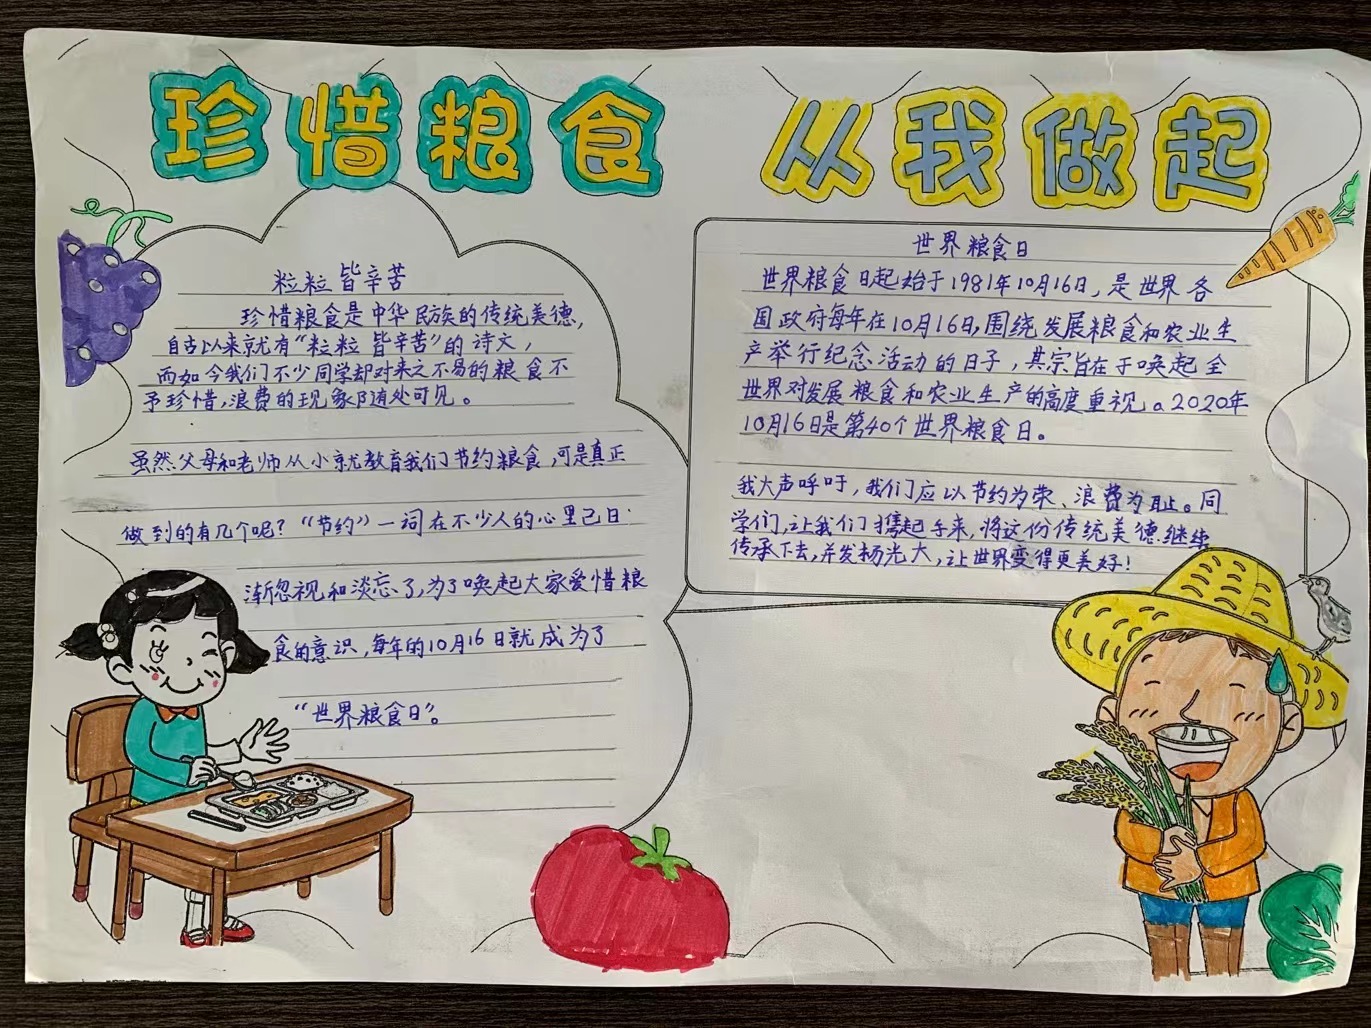 珍惜粮食 从我做起
粒粒皆辛苦
珍惜粮食是中华民族的传统美德,
自古以来就有“粒粒皆辛苦”的诗文,
而如今我们不少同学却对来之不易的粮食不
予珍惜,浪费的现象随处可见。
虽然父母和老师从小就教育我们节约粮食,可是真正
做到的有几个呢?“节约”一词在不少人的心里已日
渐忽视和淡忘了,为了唤起大家爱惜粮
食的意识,每年的10月16日就成为了
“世界粮食日”。
世界粮食日
世界粮食日起始于1981年10月16日,是世界各
国政府每年在10月16日,围绕发展粮食和农业生
产举行纪念活动的日子,其宗旨在于唤起全
世界对发展粮食和农业生产的高度重视。2020年
10月16日是第40个世界粮食日。
我大声呼吁,我们应以节约为荣、浪费为耻。同
学们,让我们携起手来,将这份传统美德继续
传承下去,并发扬光大,让世界变得更美好!